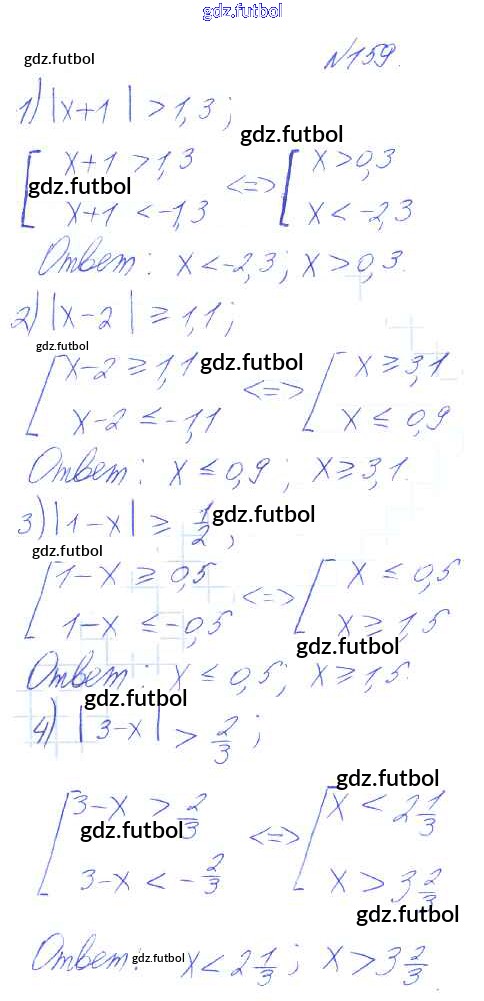 gdz.futbol
gdz.futbol
№159.
1) |x+1| > 1,3;
gdz.futbol
x+1 > 1,3 <=> x > 0,3
gdz.futbol
x+1 < -1,3 x < -2,3
Ответ: x < -2,3; x > 0,3.
2) |x-2| ≥ 1,1;
gdz.futbol
x-2 ≥ 1,1 <=> x ≥ 3,1
gdz.futbol
x-2 ≤ -1,1 x ≤ 0,9
Ответ: x ≤ 0,9; x ≥ 3,1.
3) |1-x| ≥ 1/2;
gdz.futbol
gdz.futbol
1-x ≥ 0,5 <=> x ≤ 0,5
1-x ≤ -0,5 x ≥ 1,5
gdz.futbol
Ответ: x ≤ 0,5; x ≥ 1,5.
gdz.futbol
4) |3-x| > 2/3;
gdz.futbol
3-x > 2/3 <=> x < 2 1/3
gdz.futbol
3-x < -2/3 x > 3 2/3
gdz.futbol
Ответ: x < 2 1/3; x > 3 2/3.
gdz.futbol